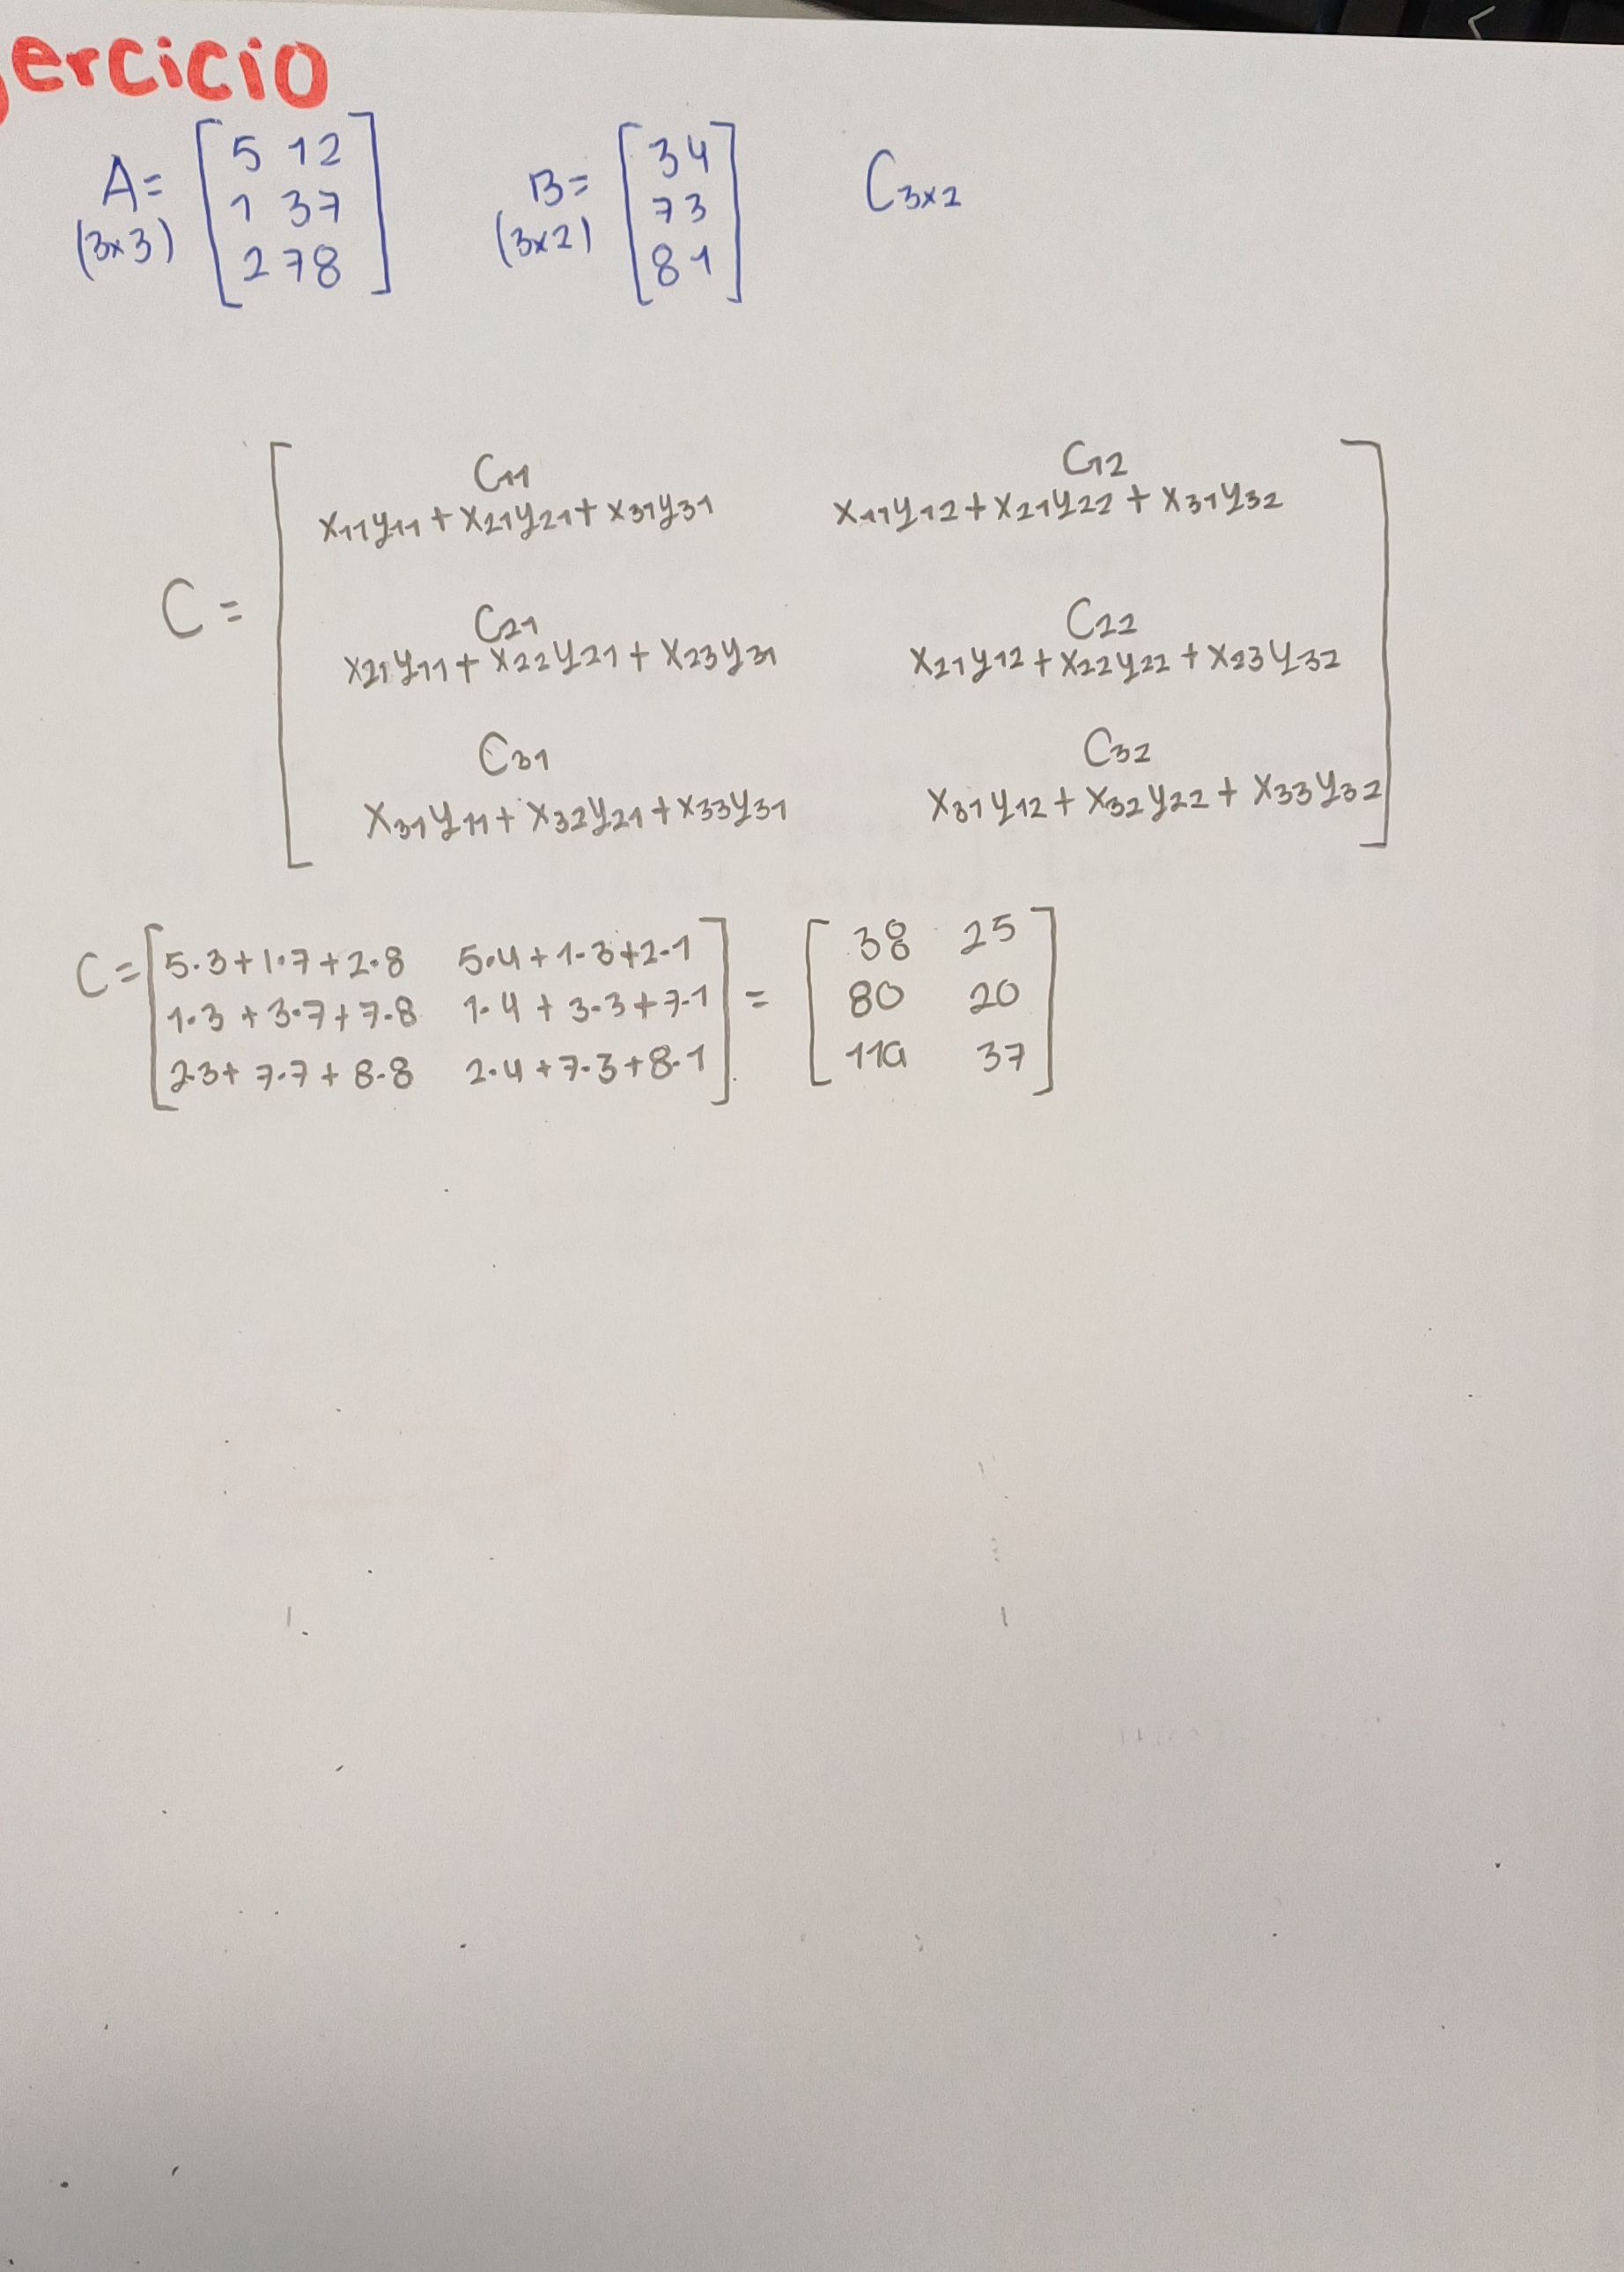 ercicio
A= [5 1 2] B= [3 4] C3x2
(3x3) [1 3 7] (3x2) [7 3]
[2 7 8] [8 1]
C11 C12
x11y11 + x21y21 + x31y31 x11y12 + x21y22 + x31y32
C =
C21 C22
x21y11 + x22y21 + x23y31 x21y12 + x22y22 + x23y32
C31 C32
x31y11 + x32y21 + x33y31 x31y12 + x32y22 + x33y32
C= [5·3+1·7+2·8 5·4+1·3+2·1] [38 25]
[1·3+3·7+7·8 1·4+3·3+7·1] = [80 20]
[2·3+7·7+8·8 2·4+7·3+8·1] [119 37]